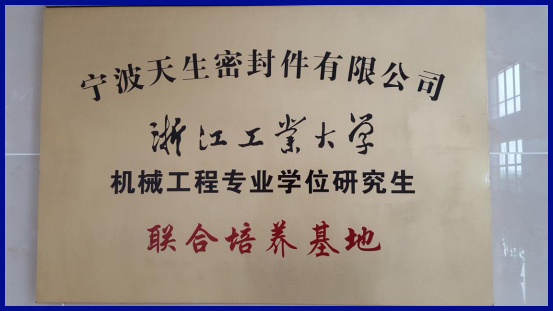 宁波天生密封件有限公司
浙江工业大学
机械工程专业学位研究生
联合培养基地